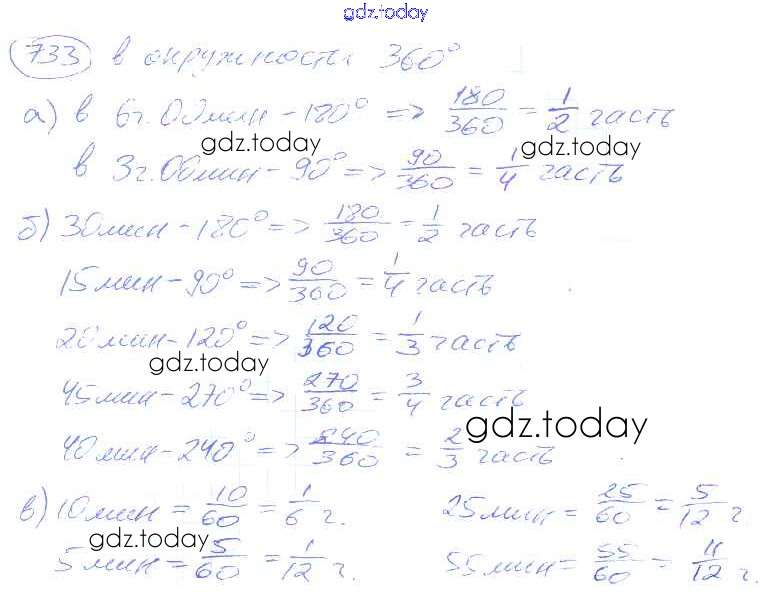 gdz.today
733 в окружности 360°
а) в 6ч.00мин - 180° => 180/360 = 1/2 часть
gdz.today gdz.today
в 3ч.00мин - 90° => 90/360 = 1/4 часть
б) 30мин - 180° => 180/360 = 1/2 часть
15мин - 90° => 90/360 = 1/4 часть
20мин - 120° => 120/360 = 1/3 часть
gdz.today
45мин - 270° => 270/360 = 3/4 часть
gdz.today
40мин - 240° => 240/360 = 2/3 часть
в) 10мин = 10/60 = 1/6 ч. 25мин = 25/60 = 5/12 ч
gdz.today
5мин = 5/60 = 1/12 ч. 55мин = 55/60 = 11/12 ч.
gdz.today